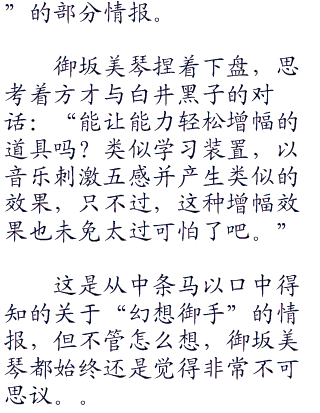 ”的部分情报。
御坂美琴捏着下盘，思
考着方才与白井黑子的对
话：“能让能力轻松增幅的
道具吗？类似学习装置，以
音乐刺激五感并产生类似的
效果，只不过，这种增幅效
果也未免太过可怕了吧。”
这是从中条马以口中得
知的关于“幻想御手”的情
报，但不管怎么想，御坂美
琴都始终还是觉得非常不可
思议。。